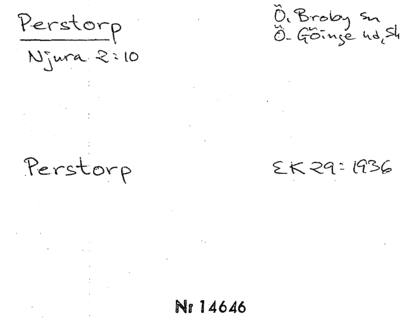 Perstorp
Ö. Broby sn
Njura 2:10
Ö. Göinge hd, Sk
Perstorp
EK 29: 1936
Nr 14646